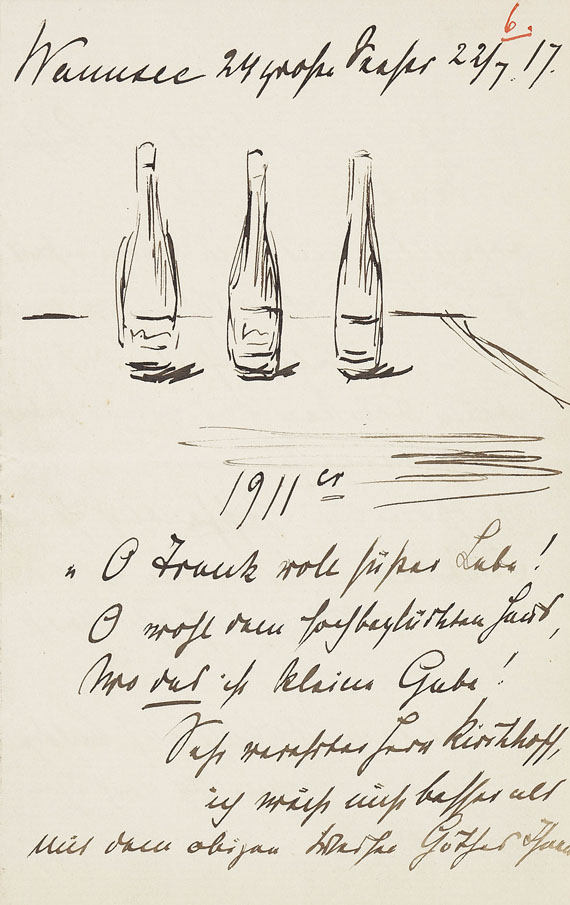 6.
Wannsee 24 große Seestr 22/7. 17.
1911er
„ O Trank voll süßer Labe!
O wohl dem hochbeglückten Haus,
Wo das ist kleine Gabe!
Sehr verehrter Herr Kirchhoff,
ich weiß nicht besser als
mit dem obigen Verse Göthes Ihnen